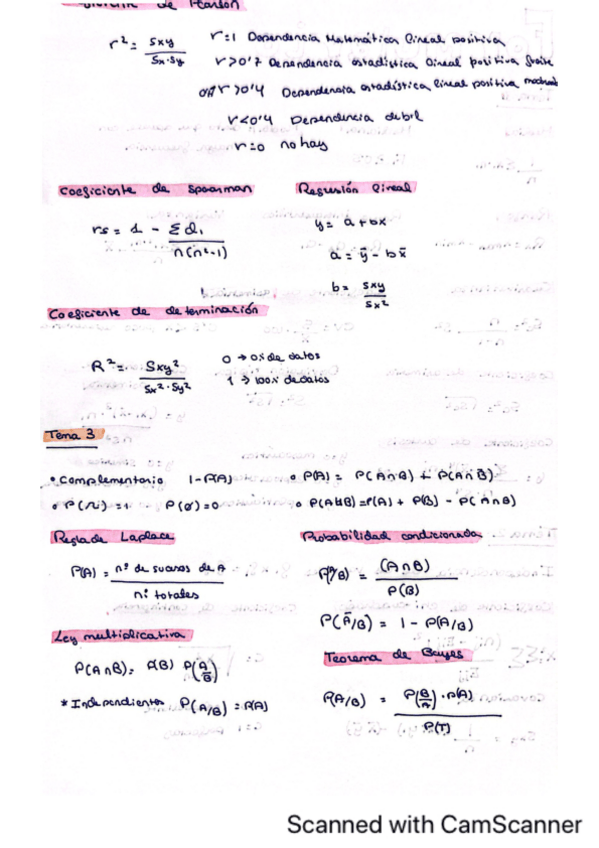 de Pearson
r² = Sxy / Sx·Sy
r=1 Dependencia Matemática lineal positiva
r>0'7 Dependencia estadística lineal positiva fuerte
r>0'4 Dependencia estadística lineal positiva
r<0'4 Dependencia debil
r=0 no hay
Coeficiente de Spearman
rs = 1 - Σdi / n(n²-1)
Regresión lineal
y = a + bx
a = ȳ - bx̄
b = Sxy / Sx²
Coeficiente de determinación
R² = Sxy² / Sx²·Sy²
0 → 0% de datos
1 → 100% de datos
Tema 3
• Complementario 1-P(A)
• P(Ω) = 1 P(∅) = 0
• P(A) = P(A∩B) + P(A∩B̄)
• P(A∪B) = P(A) + P(B) - P(A∩B)
Regla de Laplace
P(A) = nº de sucesos de A / nº totales
Ley multiplicativa
P(A∩B) = P(B) P(A/B)
* Independientes P(A/B) = P(A)
Probabilidad condicionada
P(A/B) = (A∩B) / P(B)
P(Ā/B) = 1 - P(A/B)
Teorema de Bayes
P(A/B) = P(B/A)·P(A) / P(T)
Scanned with CamScanner